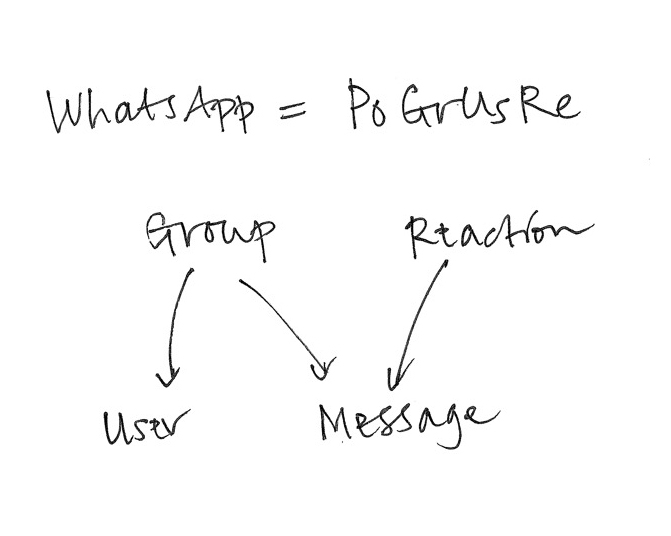 WhatsApp = PoGrUsRe
Group Reaction
User Message